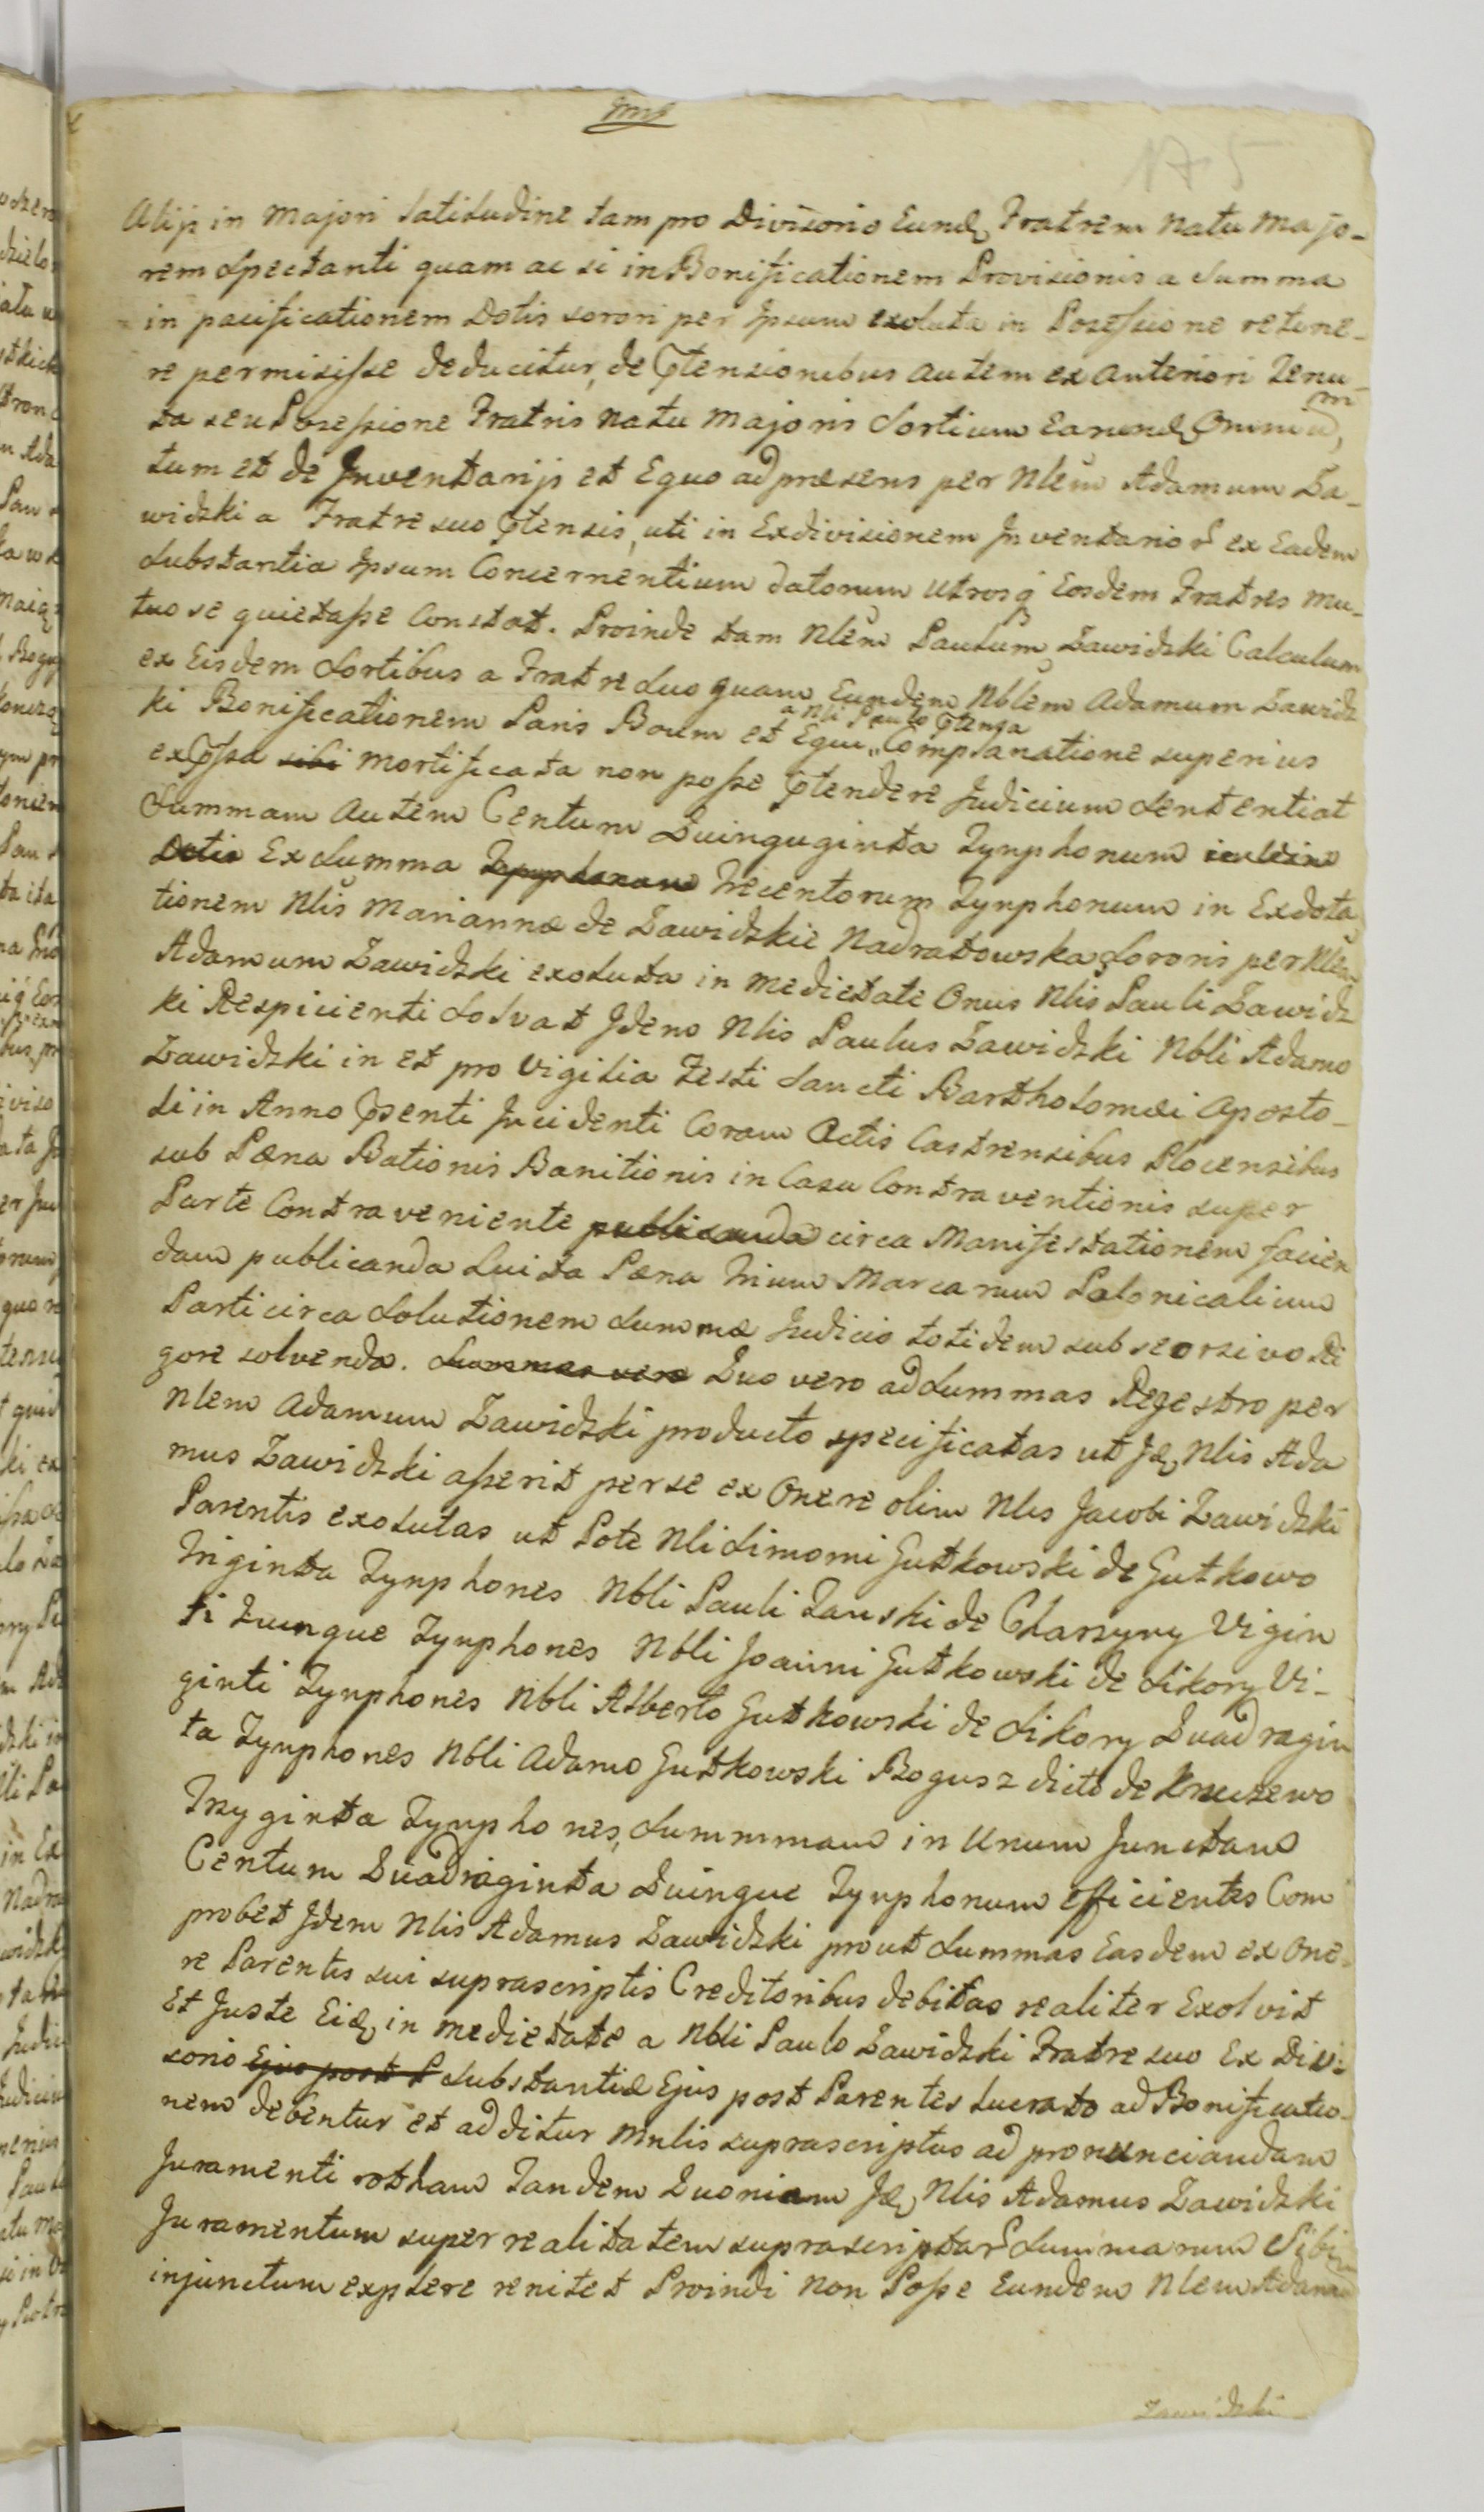 175
Alijs in Majori Latitudine tam pro Divisorio Eund. Fratrem Natu Majo-
rem Spectanti quam ac si in Bonificationem Provisionis a Summa
in pacificationem Dotis sorori per Ipsum exoluta in Possessione retine-
re permisisse deducitur, de Ptensionibus autem ex Anteriori Tenu-
ta seu Possessione Fratris Natu Majoris Sortium Earund. Omnium,
tum et de Inventarijs et Equo ad presens per Nlem Adamum Za-
widzki a Fratre suo Ptensis, uti in Exdivisionem Inventarior ex Eadem
Substantia Ipsum Concernentium datorum Utrosq Eosdem Fratres Mu-
tuo se quietasse Constat. Proinde tam Nlem Paulum Zawidzki Calculum
ex Eisdem Sortibus a Fratre Suo quam Eundem Nblem Adamum Zawidz
ki Bonificationem Paris Boum et Equi a Nli Paulo Ptensa Complanatione superius
exPssa sibi mortificata non posse Ptendere Judicium Sententiat
Summam Autem Centum Quinquginta Tynphonum
Ex Summa Tynphonum Trecentorum Tynphonum in Exdota
tionem Nlis Mariannæ de Zawidzkie Nadratowska Sororis per Nlem
Adamum Zawidzki exoluta in Medietate Onus Nlis Pauli Zawidz
ki Respicienti Solvat Idem Nlis Paulus Zawidzki Nbli Adamo
Zawidzki in et pro Vigilia Festi Sancti Bartholomæi Aposto-
li in Anno Psenti Incidenti Coram Actis Castrensibus Plocensibus
sub Pæna Bationis Banitionis in Casu Contraventionis super
Parte Contraveniente publicanda circa Manifestationem facien
dam publicanda Luita Pæna trium Marcarum Polonicalium
Parti circa Solutionem Summæ Judicio totidem sub seorsivo Ri
gore solvenda. Summas vero Quo vero ad Summas Regestro per
Nlem Adamum Zawidzki producto specificatas ut Id. Nlis Ada
mus Zawidzki asserit per se ex Onere olim Nlis Jacobi Zawidzki
Parentis exolutas ut Pote Nli Simoni Gutkowski de Gutkowo
Triginta Tynphones Nbli Pauli Zanski de Charzyny Vigin
ti Quinque Tynphones Nbli Joanni Gutkowski de Sikory Vi-
ginti Tynphones Nbli Alberto Gutkowski de Sikory Quadragin
ta Tynphones Nbli Adamo Gutkowski Bogusz dicto de Kruszewo
Tryginta Tynphones, Summmam in Unum Junctam
Centum Quadraginta Quinque Tynphonum efficientes Com
probet Idem Nlis Adamus Zawidzki prout Summas Easdem ex One-
re Parentis sui suprascriptis Creditoribus debitas realiter Exolvit
Et Juste Eid. in Medietate a Nbli Paulo Zawidzki Fratre suo Ex Divi-
sorio Ejus post P Substantiæ Ejus post Parentes Lucrato ad Bonificatio-
nem debentur et additur Mnlis suprascriptus ad pronunciandam
Juramenti rotham Tandem Quoniam Id. Nlis Adamus Zawidzki
Juramentum super realitatem suprascriptar Summarum Sibi
injunctum explere renitet Proindi Non Posse Eundem Nlem Adamum
Zawidzki